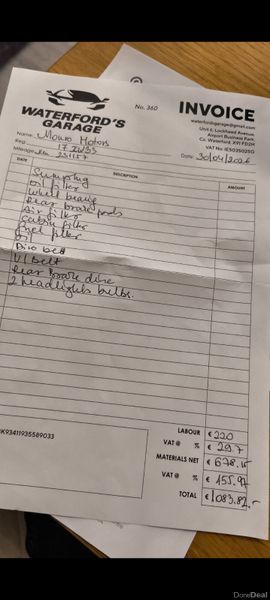 WATERFORD'S
GARAGE
No. 360
INVOICE
waterfordsgarage@gmail.com
Unit 6, Lockheed Avenue,
Airport Business Park,
Co. Waterford. X91 FD2H
VAT No: IE5035025G
Name: Mowo Motors
Reg
Mileage 231157
Date: 30/04/2026
DATE
DESCRIPTION
AMOUNT
Sumplug
Oil filter
Wheel
Rear brake pads
Air filter
Cabin filter
Fuel filter
Oil
belt
V/belt
Rear Brake disc
2 headlights bulbs.
LABOUR € 220
VAT @ % € 29.7
MATERIALS NET € 678.15
VAT @ % € 155.97
TOTAL € 1083.82
K93411935589033
DoneDeal